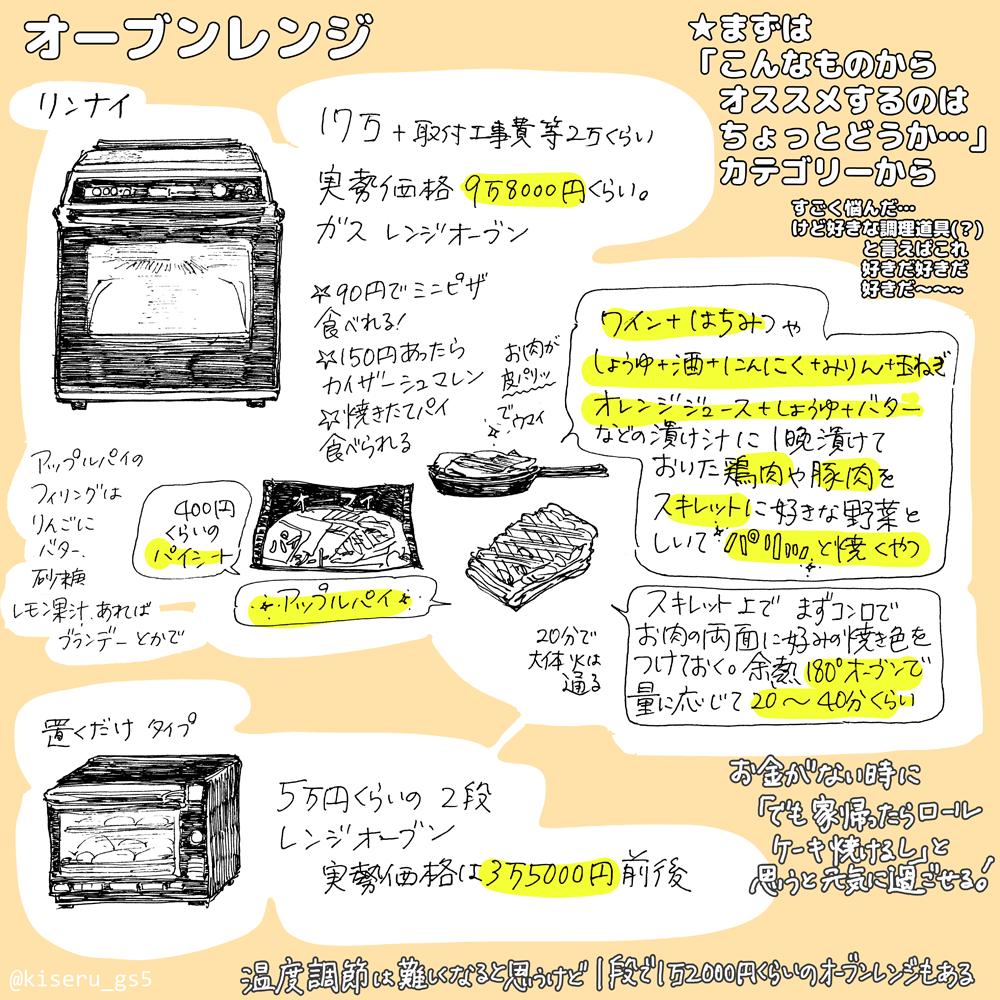 オーブンレンジ
★まずは
「こんなものから
オススメするのは
ちょっとどうか…」
カテゴリーから
すごく悩んだ…
けど好きな調理道具(?)
と言えばこれ
好きだ好きだ
好きだ〜〜〜
リンナイ
17万+取付工事費等2万くらい
実勢価格9万8000円くらい。
ガスレンジオーブン
☆90円でミニピザ
食べれる!
☆150円あったら
カイザーシュマレン
☆焼きたてパイ
食べられる
お肉が
皮パリッ
でウマイ
ワイン+はちみつや
しょうゆ+酒+にんにく+みりん+玉ねぎ
オレンジジュース+しょうゆ+バター
などの漬け汁に1晩漬けて
おいた鶏肉や豚肉を
スキレットに好きな野菜と
しいてパリッ…と焼くやつ
スキレット上でまずコンロで
お肉の両面に好みの焼き色を
つけておく。余熱180°オーブンで
量に応じて20〜40分くらい
20分で
大体火は
通る
アップルパイの
フィリングは
りんごに
バター、
砂糖
レモン果汁、あれば
ブランデーとかで
400円
くらいの
パイシート
パイシート
アップルパイ
置くだけタイプ
5万円くらいの2段
レンジオーブン
実勢価格は3万5000円前後
お金がない時に
「でも家帰ったらロール
ケーキ焼けるし」と
思うと元気に過ごせる!
@kiseru_gs5
温度調節は難しくなると思うけど1段で1万2000円くらいのオーブンレンジもある